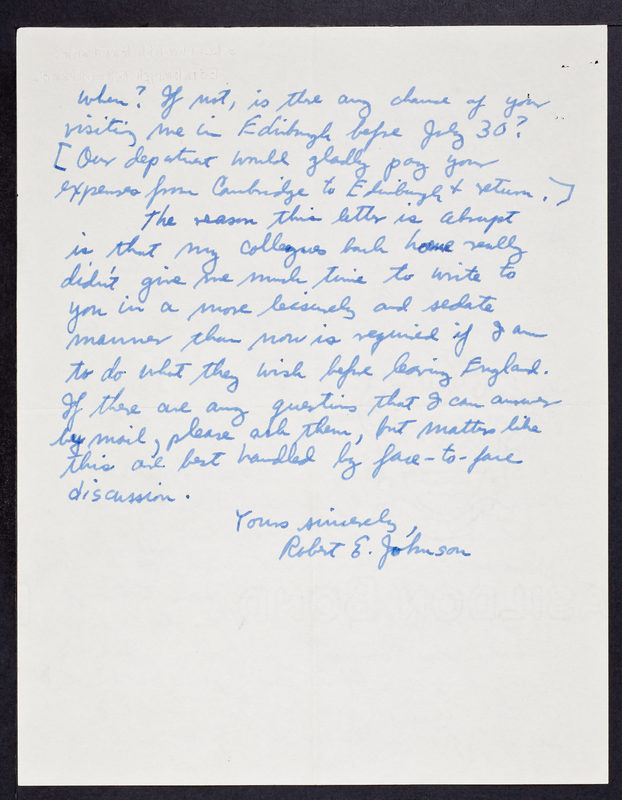 when? If not, is there any chance of your
visiting me in Edinburgh before July 30?
[Our department would gladly pay your
expenses from Cambridge to Edinburgh & return.]
The reason this letter is abrupt
is that my colleagues back home really
didn't give me much time to write to
you in a more leisurely and sedate
manner than now is required if I am
to do what they wish before leaving England.
If there are any questions that I can answer
by mail, please ask them, but matters like
this are best handled by face-to-face
discussion.
Yours sincerely,
Robert E. Johnson